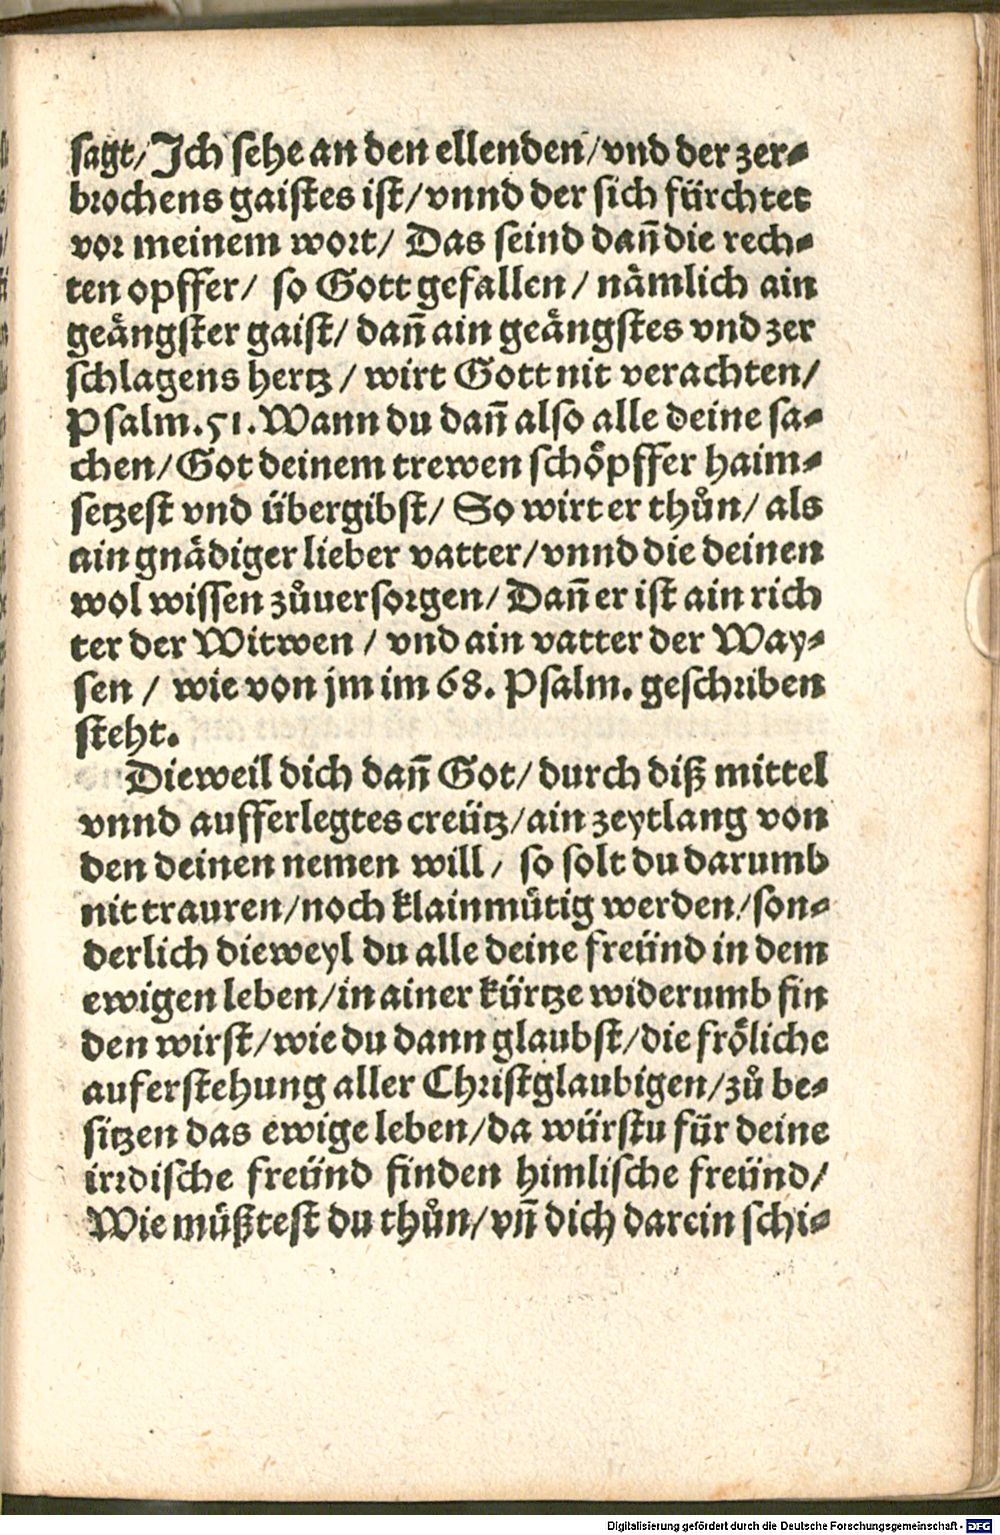 sagt/ Ich sehe an den ellenden/ vnd der zer-
brochens gaistes ist/ vnnd der sich fürchtet
vor meinem wort/ Das seind dañ die rech-
ten opffer/ so Gott gefallen/ nämlich ain
geängster gaist/ dañ ain geängstes vnd zer
schlagens hertz / wirt Gott nit verachten/
Psalm. 51. Wann du dañ also alle deine sa-
chen/ Got deinem trewen schöpffer haim-
setzest vnd übergibst/ So wirt er thůn/ als
ain gnädiger lieber vatter/ vnnd die deinen
wol wissen zůuersorgen/ Dañ er ist ain rich
ter der Witwen / vnd ain vatter der Way-
sen / wie von jm im 68. Psalm. geschriben
steht.
Dieweil dich dañ Got/ durch diß mittel
vnnd aufferlegtes creütz/ ain zeytlang von
den deinen nemen will/ so solt du darumb
nit trauren/ noch klainmütig werden/ son-
derlich dieweyl du alle deine freünd in dem
ewigen leben/ in ainer kürtze widerumb fin
den wirst/ wie du dann glaubst/ die fröliche
auferstehung aller Christglaubigen/ zů be-
sitzen das ewige leben/ da würstu für deine
irrdische freünd finden himlische freünd/
Wie müßtest du thůn/ vñ dich darein schi-
Digitalisierung gefördert durch die Deutsche Forschungsgemeinschaft - DFG